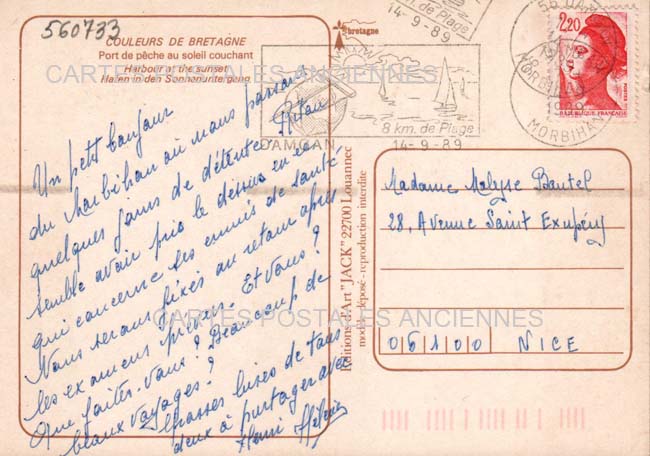 560733
COULEURS DE BRETAGNE
Port de pêche au soleil couchant
Harbour at the sunset
Hafen in den Sonnenuntergang
Un petit bonjour
du Morbihan où nous passons
quelques jours de détente. Antoun
semble avoir pris le dessus en ce
qui concerne ses ennuis de santé
Nous serons fixés au retour après
les examens prévus. Et vous ?
Que faites-vous ? Beaucoup de
beaux voyages ?
grosses bises de tous
deux à partager avec
Henri Hélène
bretagne
km. de Plage
14-9-89
DAMGAN
8 km. de Plage
14-9-89
MORBIHAN
1989
MORBIHAN
2,20
REPUBLIQUE FRANÇAISE
Editions d'Art "JACK" 22700 Louannec
modèle déposé - reproduction interdite
Madame Malyse Bautel
28, Avenue Saint Exupéry
06100 NICE
CARTES POSTALES ANCIENNES
CARTES POSTALES ANCIENNES